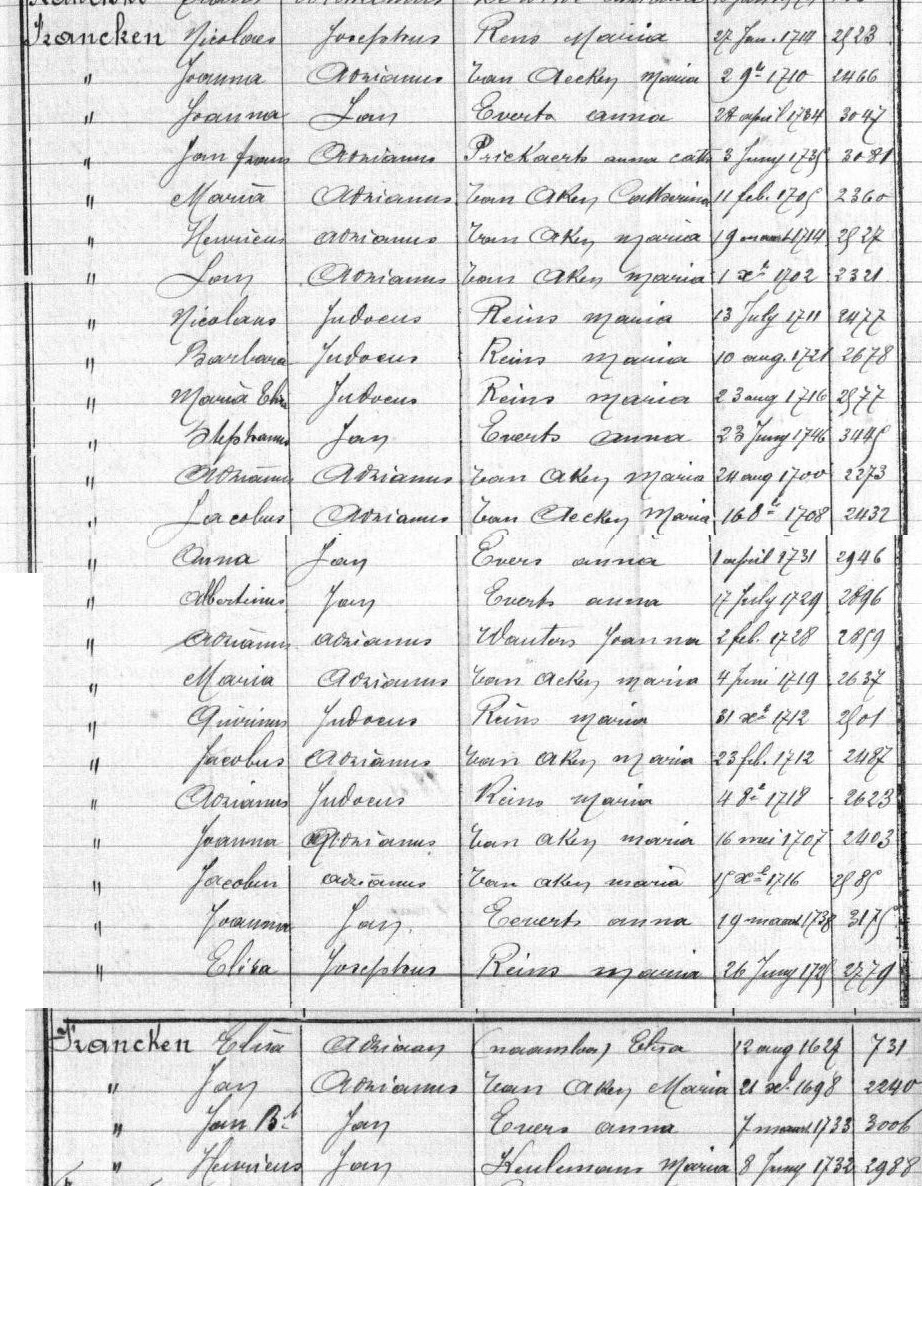 Francken Nicolaes Josephus Rens Maria 27 Jan. 1714 2523
" Joanna Adrianus Van Aecken Maria 2 9b 1710 2466
" Joanna Jan Everts anna 28 april 1734 3047
" Jan frans Adrianus Prickaerts anna cath 3 Juny 1735 3081
" Maria Adrianus Van Aken Catharina 11 feb. 1705 2360
" Henricus adrianus Van Aken maria 19 maart 1714 2527
" Jan Adrianus Van Aken Maria 1 xb 1702 2321
" Nicolaus Judocus Reins maria 13 July 1711 2477
" Barbara Judocus Reins maria 10 aug. 1721 2678
" Maria Eliz Judocus Reins maria 23 aug 1716 2577
" Stephanus Jan Everts anna 23 Juny 1746 3445
" Adrianus Adrianus Van Aken Maria 24 aug 1700 2273
" Jacobus Adrianus Van Aecken Maria 16 8b 1708 2432
" Anna Jan Evers anna 1 april 1731 2946
" Albertinus Jan Everts anna 17 July 1729 2896
" Adrianus adrianus Wauters Joanna 2 feb. 1728 2859
" Maria Adrianus Van Aeken maria 4 Juni 1719 2637
" Quirinus Judocus Reins maria 31 xb 1712 2501
" Jacobus Adrianus Van Aken maria 23 feb. 1712 2487
" Adrianus Judocus Reins maria 4 8b 1718 2623
" Joanna Adrianus Van Aken maria 16 mei 1707 2403
" Jacobus adrianus Van aken maria 15 xb 1716 2585
" Joanna Jan Eeverts anna 19 maart 1738 3175
" Elisa Josephus Reins maria 26 Juny 1725 2779
Francken Elisa Adriaan (naamloos) Elisa 12 aug 1627 731
" Jan Adrianus Van Aken Maria 21 xb 1698 2240
" Jan Bt Jan Evers anna 7 maart 1733 3006
" Henricus Jan Keulemans Maria 8 Juny 1732 2988